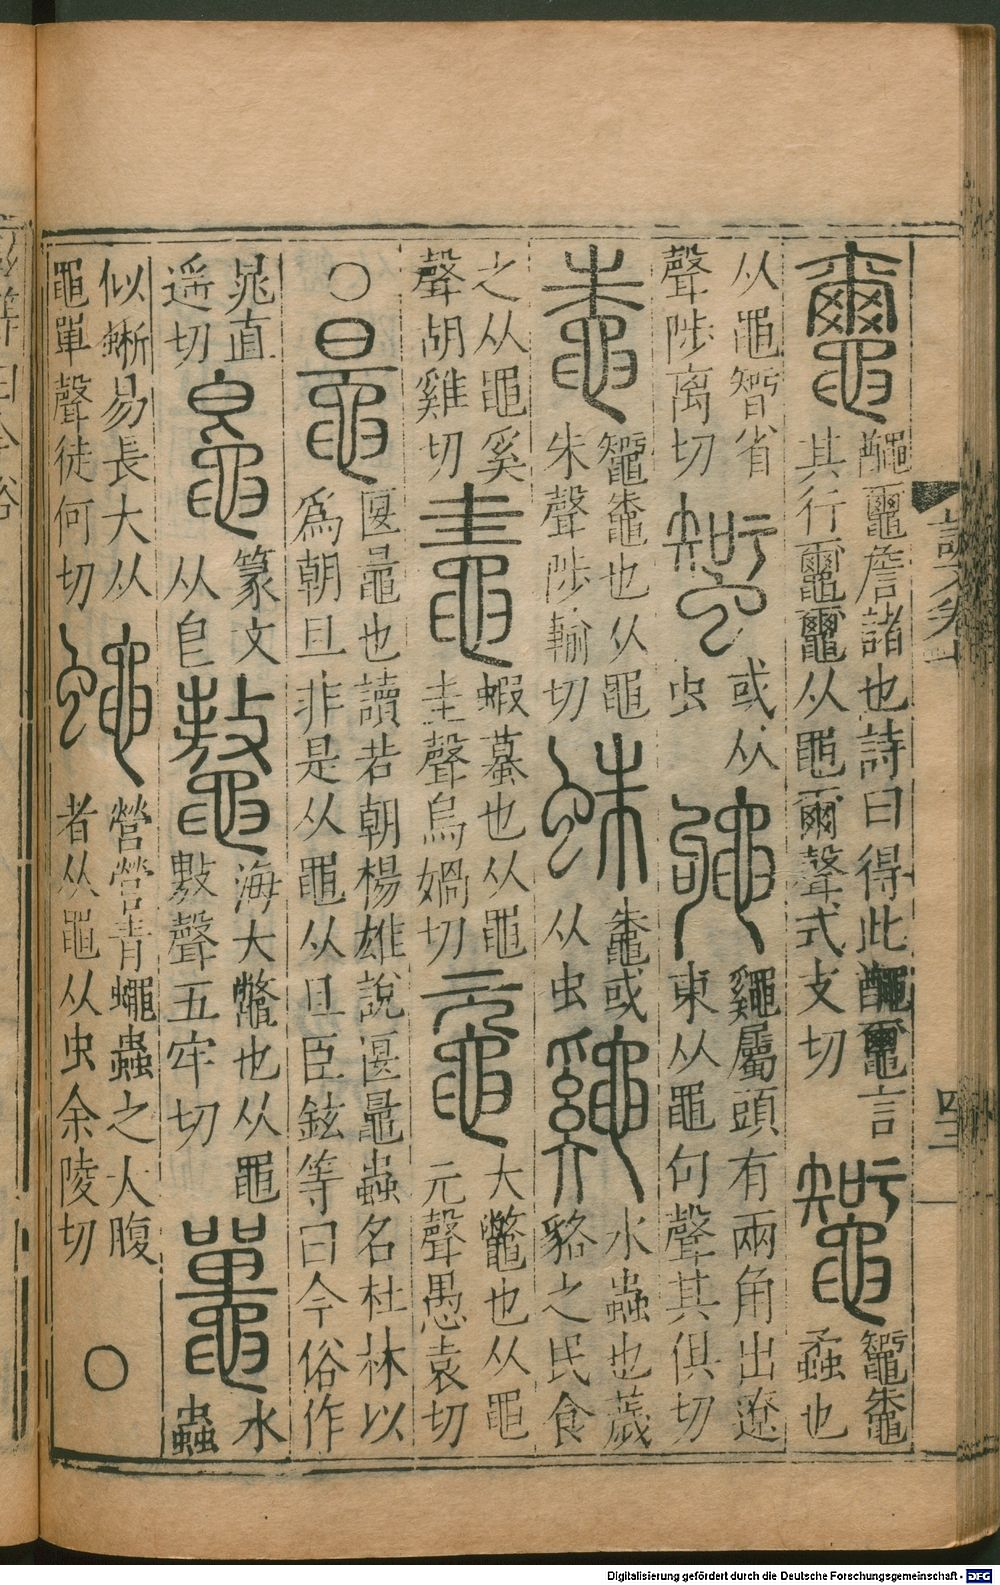 𪓿其行𪓿𪓿从黽爾聲式支切
𪓷𪓷鼄蟊也
从黽𥏼省聲陟离切
或从虫
䵶屬頭有兩角出遼東从黽句聲其俱切
鼄𪓷鼄也从黽朱聲陟輸切
蛛鼄或从虫
水蟲也薉貉之民食
之从黽奚聲胡雞切
鼃蝦蟇也从黽圭聲烏媧切
黿大鼈也从黽元聲愚袁切
○鼂匽鼂也讀若朝楊雄說匽鼂蟲名杜林以爲朝旦非是从黽从旦臣鉉等曰今俗作
晁直遥切
篆文从皀
鼇海大鼈也从黽敖聲五牢切
鼉水蟲
似蜥易長大从黽單聲徒何切
蠅營營青蠅蟲之大腹者从黽从虫余陵切○
Digitalisierung gefördert durch die Deutsche Forschungsgemeinschaft - DFG